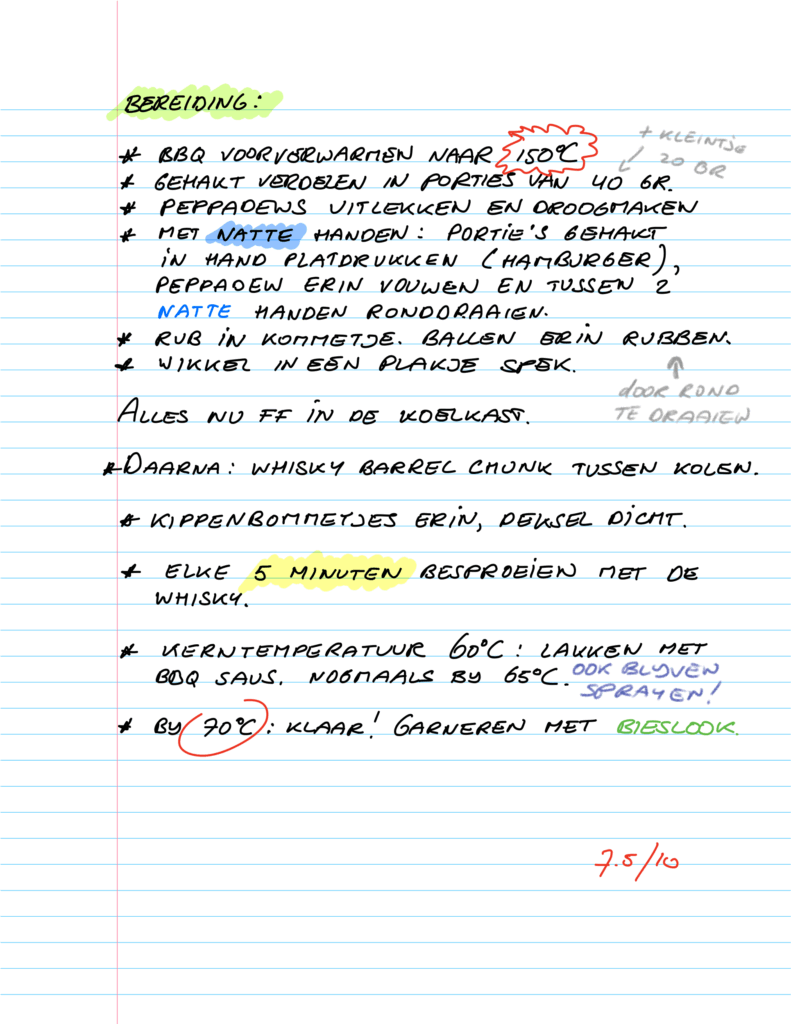 BEREIDING:
* BBQ VOORVERWARMEN NAAR 150°C
+ KLEINTJE
20 GR
* GEHAKT VERDELEN IN PORTIES VAN 40 GR.
* PEPPADEWS UITLEKKEN EN DROOGMAKEN
* MET NATTE HANDEN: PORTIE'S GEHAKT
IN HAND PLATDRUKKEN (HAMBURGER),
PEPPADEW ERIN VOUWEN EN TUSSEN 2
NATTE HANDEN RONDDRAAIEN.
* RUB IN KOMMETJE. BALLEN ERIN RUBBEN.
* WIKKEL IN EEN PLAKJE SPEK.
DOOR ROND
TE DRAAIEN
ALLES NU FF IN DE KOELKAST.
* DAARNA: WHISKY BARREL CHUNK TUSSEN KOLEN.
* KIPPENBOMMETJES ERIN, DEKSEL DICHT.
* ELKE 5 MINUTEN BESPROEIEN MET DE
WHISKY.
* KERNTEMPERATUUR 60°C: LAKKEN MET
BBQ SAUS. NOGMAALS BY 65°C. OOK BLYVEN
SPRAYEN!
* BY 70°C: KLAAR! GARNEREN MET BIESLOOK.
7.5/10